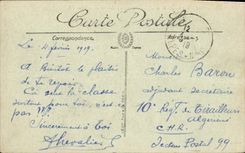 Carte Postale
Correspondance
Adresse
Le 11 février 1919.
A Bientôt le plaisir
de te revoir
Ça sera la classe
surtout pour toi, c'est
pas ??.
Sincèrement à toi
Chevalier
Monsieur
Charles Baron
adjudant secrétaire
10e Régt de Tirailleurs
Algériens
C.H.R.
Secteur Postal 99